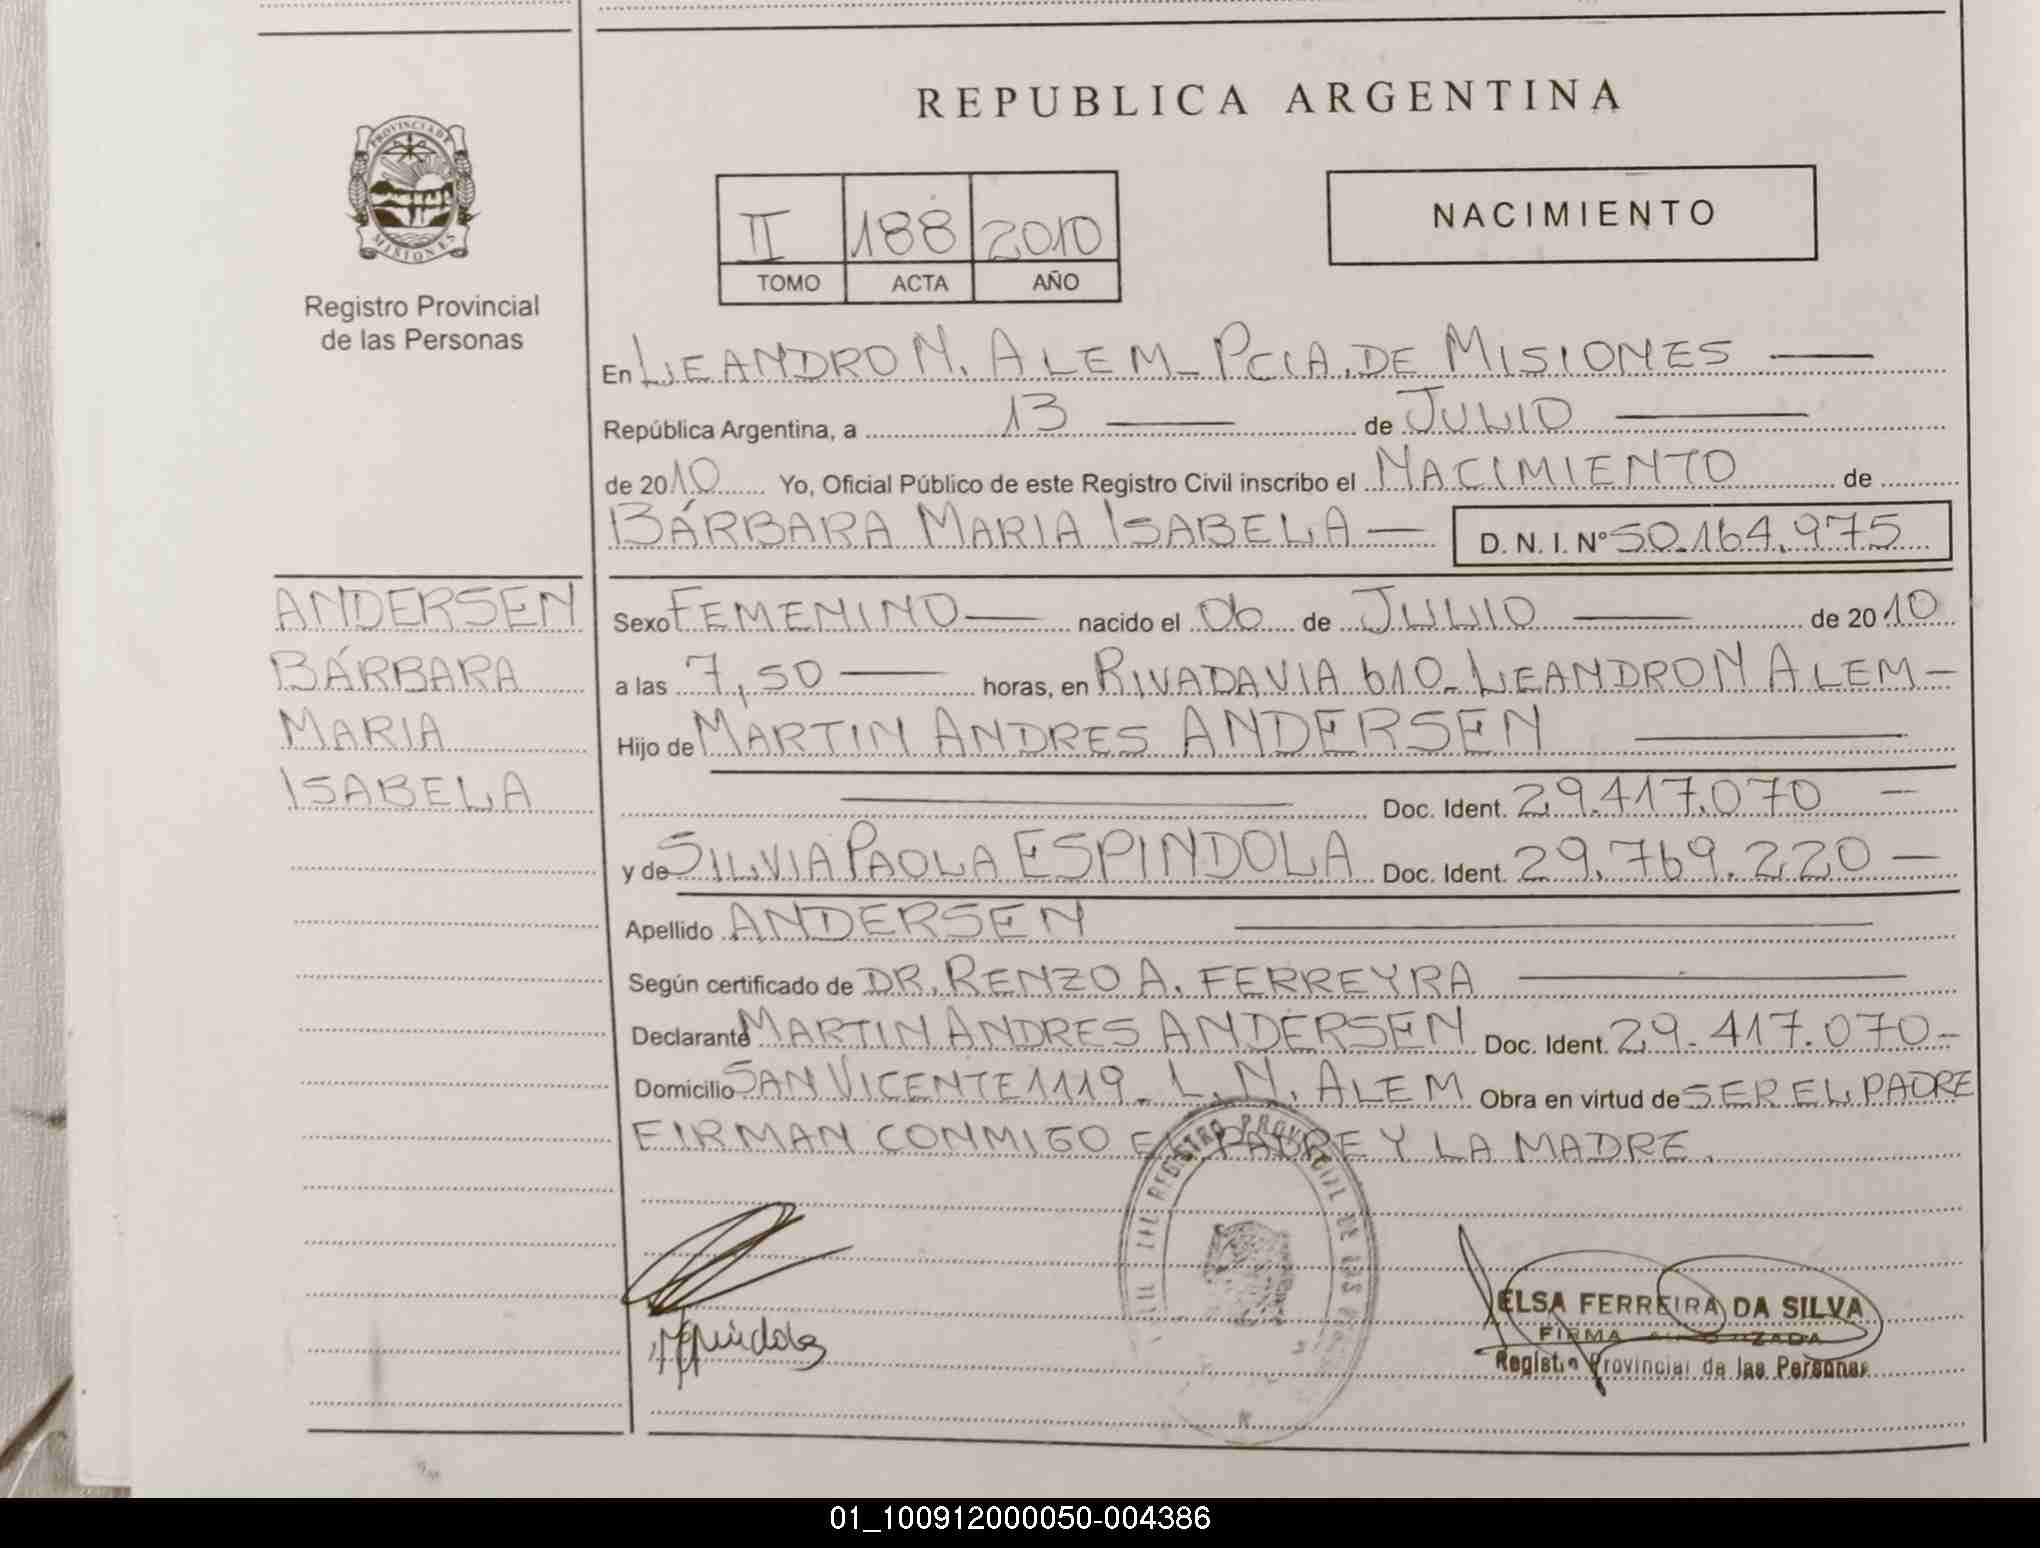 REPUBLICA ARGENTINA
PROVINCIA DE
MISIONES
Registro Provincial
de las Personas
II 188 2010
TOMO ACTA AÑO
NACIMIENTO
En LEANDRO N. ALEM - PCIA. DE MISIONES
República Argentina, a 13 de JULIO
de 2010 Yo, Oficial Público de este Registro Civil inscribo el NACIMIENTO de
BÁRBARA MARIA ISABELA — D. N. I. Nº 50.164.975
ANDERSEN
BÁRBARA
MARIA
ISABELA
Sexo FEMENINO — nacido el 06 de JULIO — de 2010
a las 7,50 — horas, en RIVADAVIA 610 - LEANDRO N ALEM -
Hijo de MARTIN ANDRES ANDERSEN —
Doc. Ident. 29.417.070 —
y de SILVIA PAOLA ESPINDOLA Doc. Ident. 29.769.220 —
Apellido ANDERSEN —
Según certificado de DR. RENZO A. FERREYRA —
Declarante MARTIN ANDRES ANDERSEN Doc. Ident. 29.417.070 -
Domicilio SAN VICENTE 1119 - L. N. ALEM Obra en virtud de SER EL PADRE
FIRMAN CONMIGO EL PADRE Y LA MADRE.
REGISTRO PROVINCIAL DE LAS
ELSA FERREIRA DA SILVA
FIRMA AUTORIZADA
Registro Provincial de las Personas
01_100912000050-004386